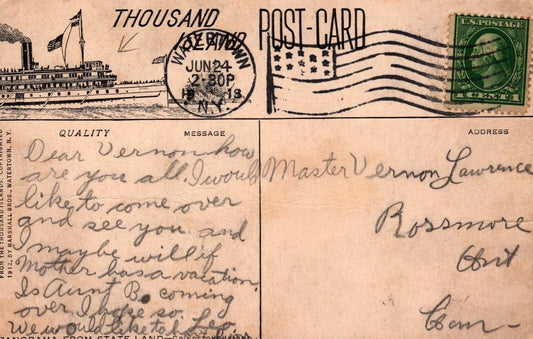 THOUSAND
ISLAND POST-CARD
WATERTOWN
JUN 24
2-30P
1913
N.Y.
U.S.POSTAGE
1 CENT 1
QUALITY MESSAGE ADDRESS
FROM THE THOUSAND ISLANDS, COPYRIGHTED
1912, BY MARSHALL BROS., WATERTOWN, N.Y.
Dear Vernon how
are you all, I would
like to come over
and see you and
I maybe will if
Mother has a vacation,
Is Aunt B. coming
over, I hope so.
We would like to Leo,
Master Vernon Lawrence
Rossmore
Ont
Can-
PANORAMA FROM STATE LAND